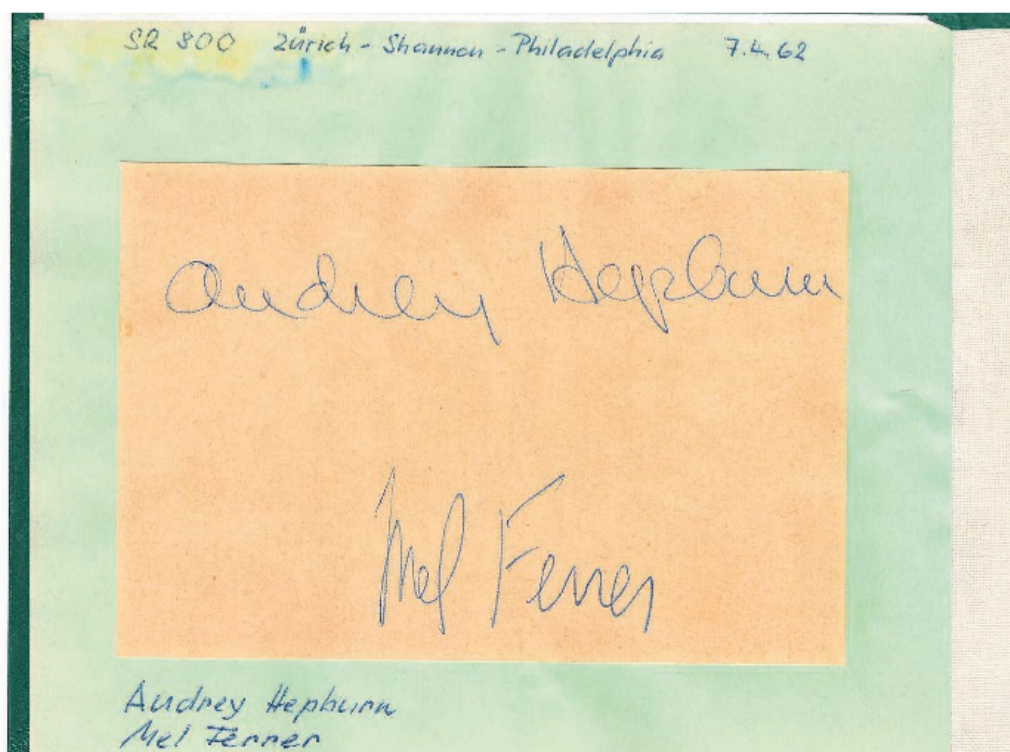 SR 800 Zürich - Shannon - Philadelphia 7.4.62
Audrey Hepburn
Mel Ferrer
Audrey Hepburn
Mel Ferrer